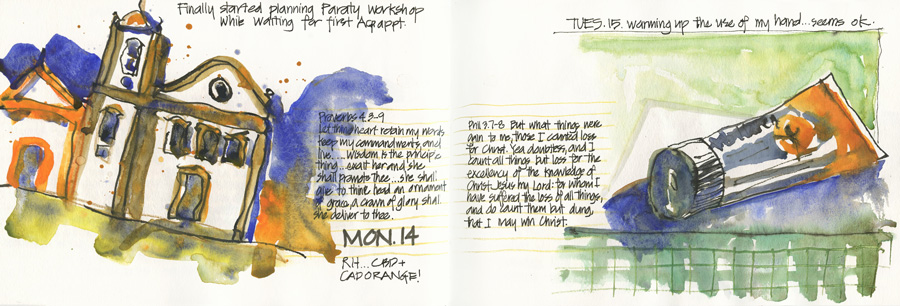 Finally started planning Paraty workshop
while waiting for first Aq appt.
Proverbs 4.3-9
Let thine heart retain my words
keep my commandments, and
live.....Wisdom is the principle
thing...exalt her and she
shall promote thee...she shall
give to thine head an ornament
of grace, a crown of glory shall
she deliver to thee.
MON.14
RH...CBD+
CAD ORANGE!
TUES. 15. warming up the use of my hand...seems ok.
Phil 3.7-8 But what things were
gain to me, those I counted loss
for Christ. Yea doubtless, and I
count all things but loss for the
excellency of the knowledge of
Christ Jesus my Lord: for whom I
have suffered the loss of all things,
and do count them but dung,
that I may win Christ.